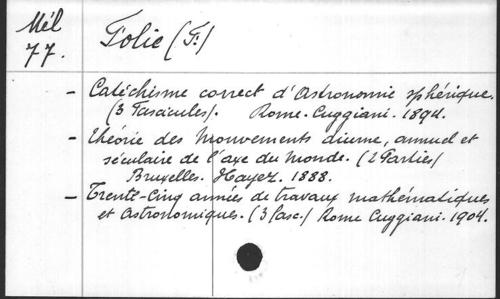 Mél
77.
Folie (F.)
- Catéchisme correct d'Astronomie sphérique.
(3 Fascicules). Rome. Cuggiani. 1894.
- Théorie des Mouvements diurne, annuel et
séculaire de l'axe du Monde. (2 Parties)
Bruxelles. Hayez. 1888.
- Trente-Cinq années de travaux mathématiques
et Astronomiques. (3 fasc.) Rome Cuggiani. 1904.